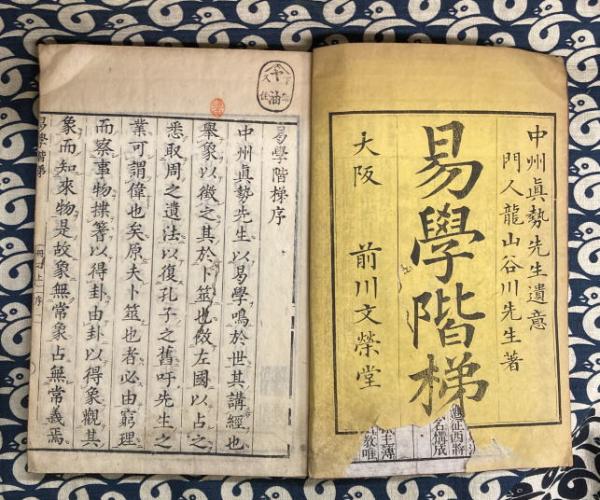 中州眞勢先生遺意
門人龍山谷川先生著
易學階梯
大阪 前川文榮堂
易學階梯序
中州眞勢先生以易學鳴於世其講經也
舉象以徵之其於卜筮也倣左國以占之
悉取周之遺法以復孔子之舊吁先生之
業可謂偉也矣原夫卜筮也者必由窮理
而察事物揲蓍以得卦由卦以得象觀其
象而知來物是故象無常象占無常義焉
易學階梯